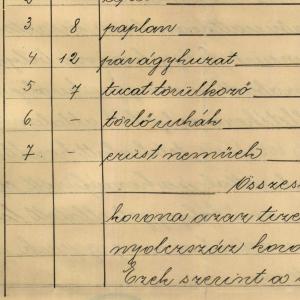 3. 8 paplan
4 12 pár ágyhuzat
5 7 tucat törülköző
6. - törlő ruhák
7. - ezüst neműek
Összes
korona azaz tize
nyolczszáz koro
Ezek szerint a